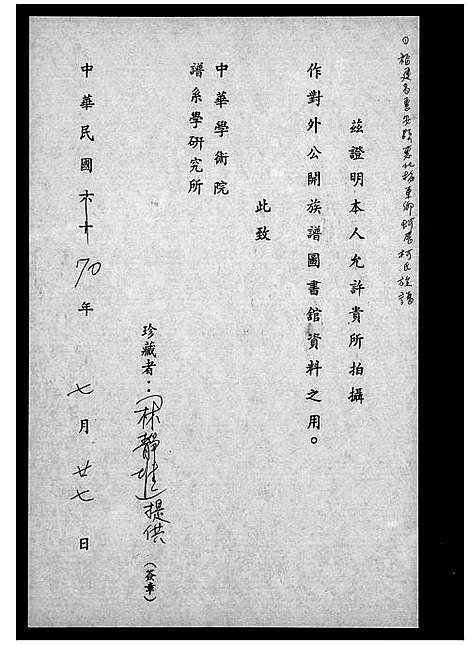 ①福建省惠安縣惠北揚車鄉蚵厝柯氏族譜
茲證明本人允許貴所拍攝
作對外公開族譜圖書館資料之用。
此致
中華學術院
譜系學研究所
珍藏者：林靜 提供（簽章）
中華民國六十70年七月廿七日